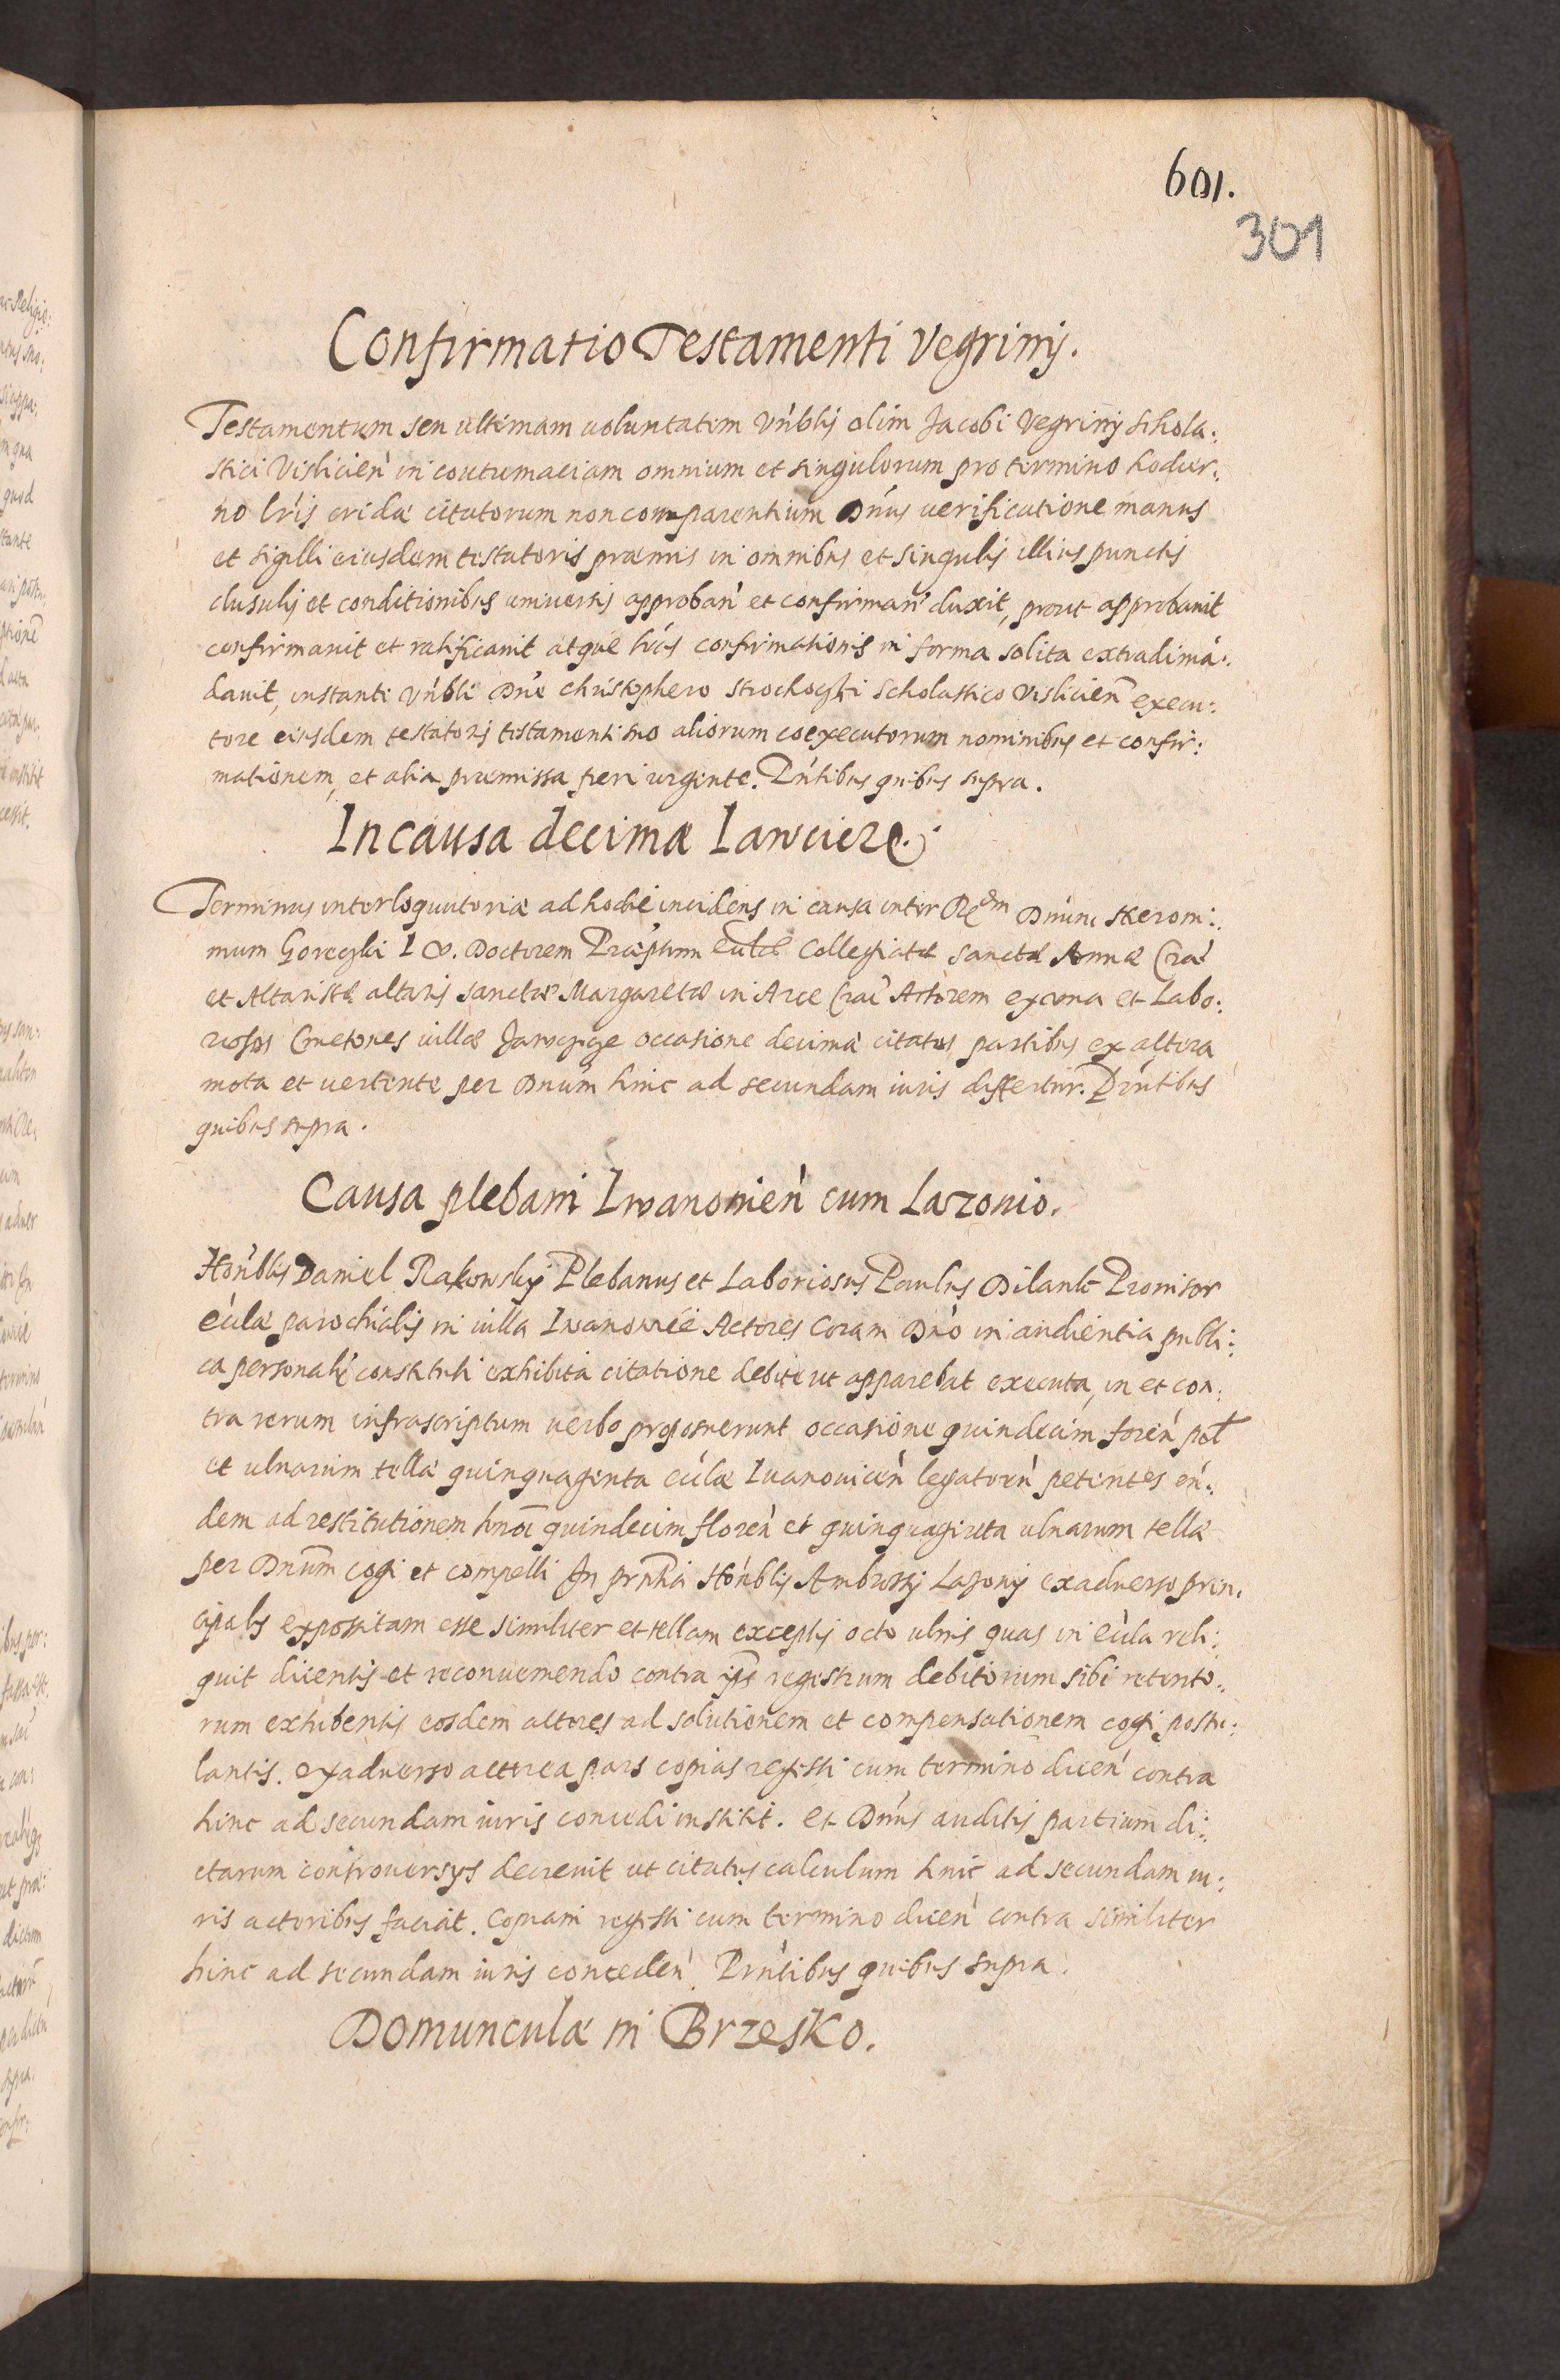 601.
301
Confirmatio Testamenti Vegrinij.
Testamentum seu ultimam uoluntatem Vńblis olim Jacobi Vegrinij Schola:
stici Vislicień in contumaciam omnium et singulorum pro termino hodier:
no lŕis cridæ citatorum non comparentium Dńus uerificatione manus
et sigilli eiusdem testatoris præmis in omnibus et singulis illius punctis
clusulis et conditionibus uniuersis approbań et confirmań duxit, prout approbauit
confirmauit et ratificauit atque lŕas confirmationis in forma solita extradimā:
dauit, instante Vńbli Dńo Christophero Scholastico Vislicień execu:
tore eiusdem testatoris testamenti suo aliorum coexecutorum nominibus et confir:
mationem, et alia præmissa fieri urgente. Pńtibus quibus supra.
In causa decimæ
Terminus interloquutoriæ ad hodie incidens in causa inter Rdm Dnum Hieroni:
mum Goreczki I. V. Doctorem Præptum Ecłæ Collegiatæ Sanctæ Annæ Crać
et Altaristæ altaris sanctæ Margaretæ in Arce Crać Actorem ex una et Labo:
riosos Cmetones uillæ occasione decimæ citatos partibus ex altera
mota et uertente per Dnum hinc ad secundam iuris differtur. Pńtibus
quibus supra.
Causa plebani Iwanowień cum Lazonio.
Hońblis Daniel Rakowsky Plebanus et Laboriosus Paulus Prouisor
ecłæ parochialis in uilla Actores Coram Dńo in audientia publi:
ca personalr̃ constituti exhibita citatione debite ut apparebat executa, in et con:
tra rerum infrascriptum uerbo proposuerunt occasione quindecim floreń poł
et ulnarum tellæ quinquaginta ecłæ Iuanouicień legatorń petentes eń:
dem ad restitutionem hmõi quindecim floreń et quinquaginta ulnarum tellæ
per Dnum cogi et compelli In prn̄tia Hońblis Ambrosij Lazonij ex aduerso prin:
cipalis expositam esse similiter et tellam exceptis octo ulnis quas in ecła reli:
quit dicentis et reconueniendo contra ip̄s regestrum debitorum sibi retento:
rum exhibentis eosdem actores ad solutionem et compensationem cogi postu:
lantis. ex aduerso actorea pars copias regesti cum termino diceń contra
hinc ad secundam iuris concedi institit. Et Dńus auditis partium di:
ctarum controuersys decreuit ut citatus calculum hinc ad secundam iu:
ris actoribus faciat. Copiam regesti cum termino diceń contra similiter
hinc ad secundam iuris concedeń Prńtibus quibus supra.
Domunculæ in Brzesko.